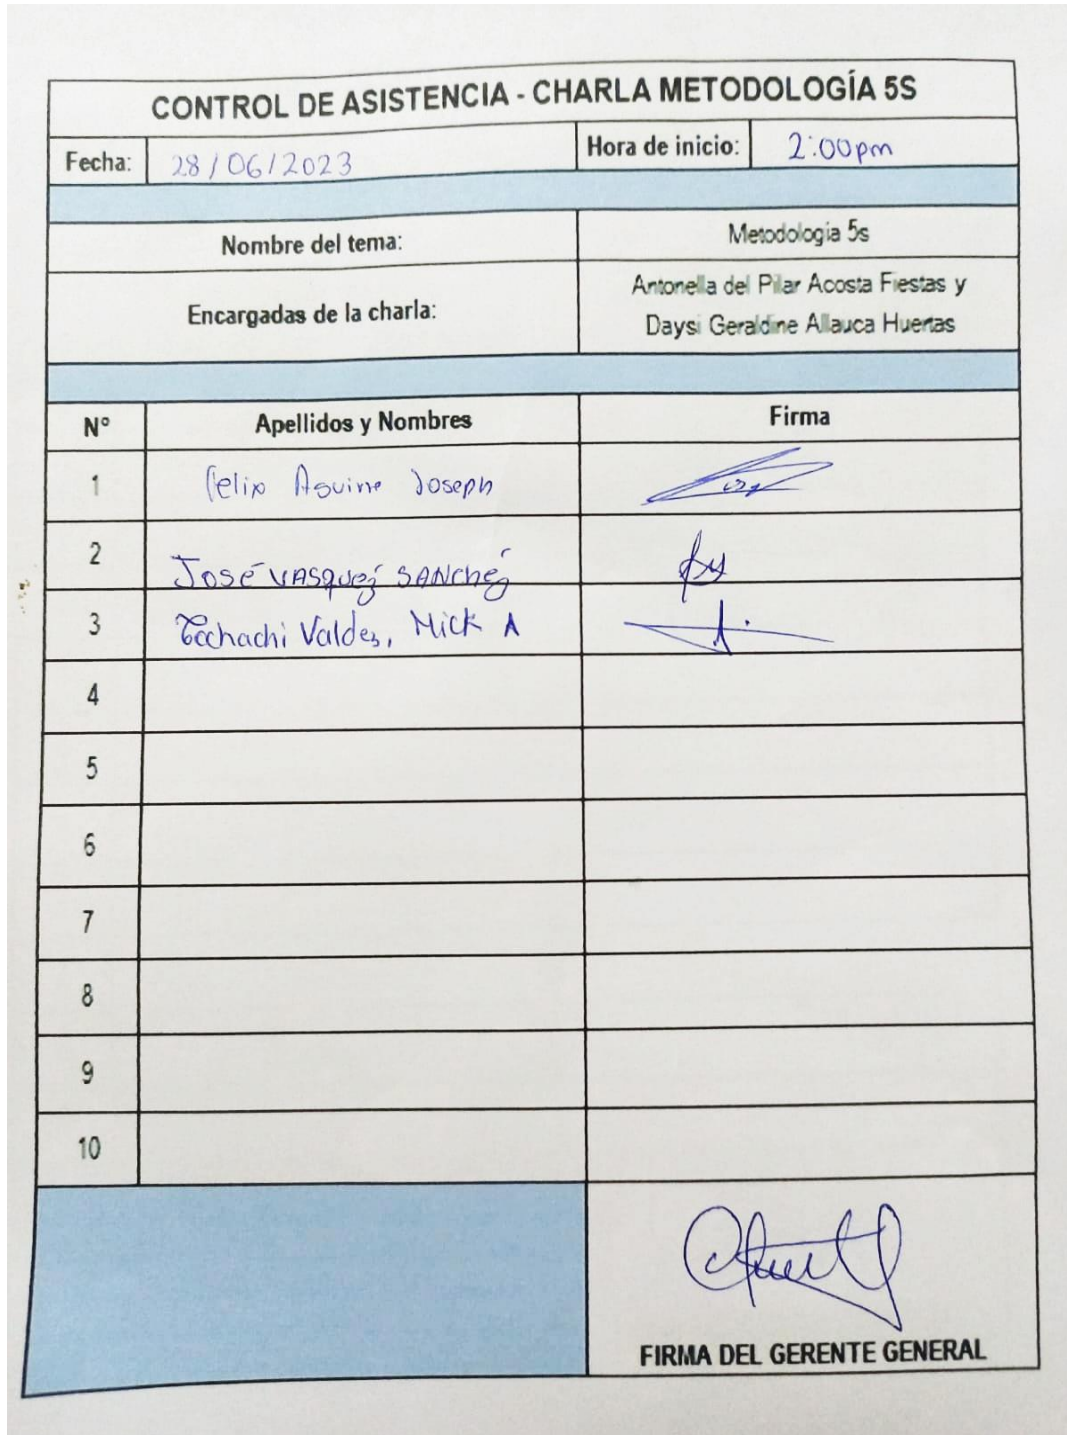 CONTROL DE ASISTENCIA - CHARLA METODOLOGÍA 5S
Fecha: 28/06/2023 Hora de inicio: 2:00pm
Nombre del tema: Metodología 5s
Encargadas de la charla: Antonella del Pilar Acosta Fiestas y
Daysi Geraldine Allauca Huertas
N° Apellidos y Nombres Firma
1 Felix Aguirre Joseph
2 José VASquez SANChez
3 Valdez, Mick A
4
5
6
7
8
9
10
FIRMA DEL GERENTE GENERAL